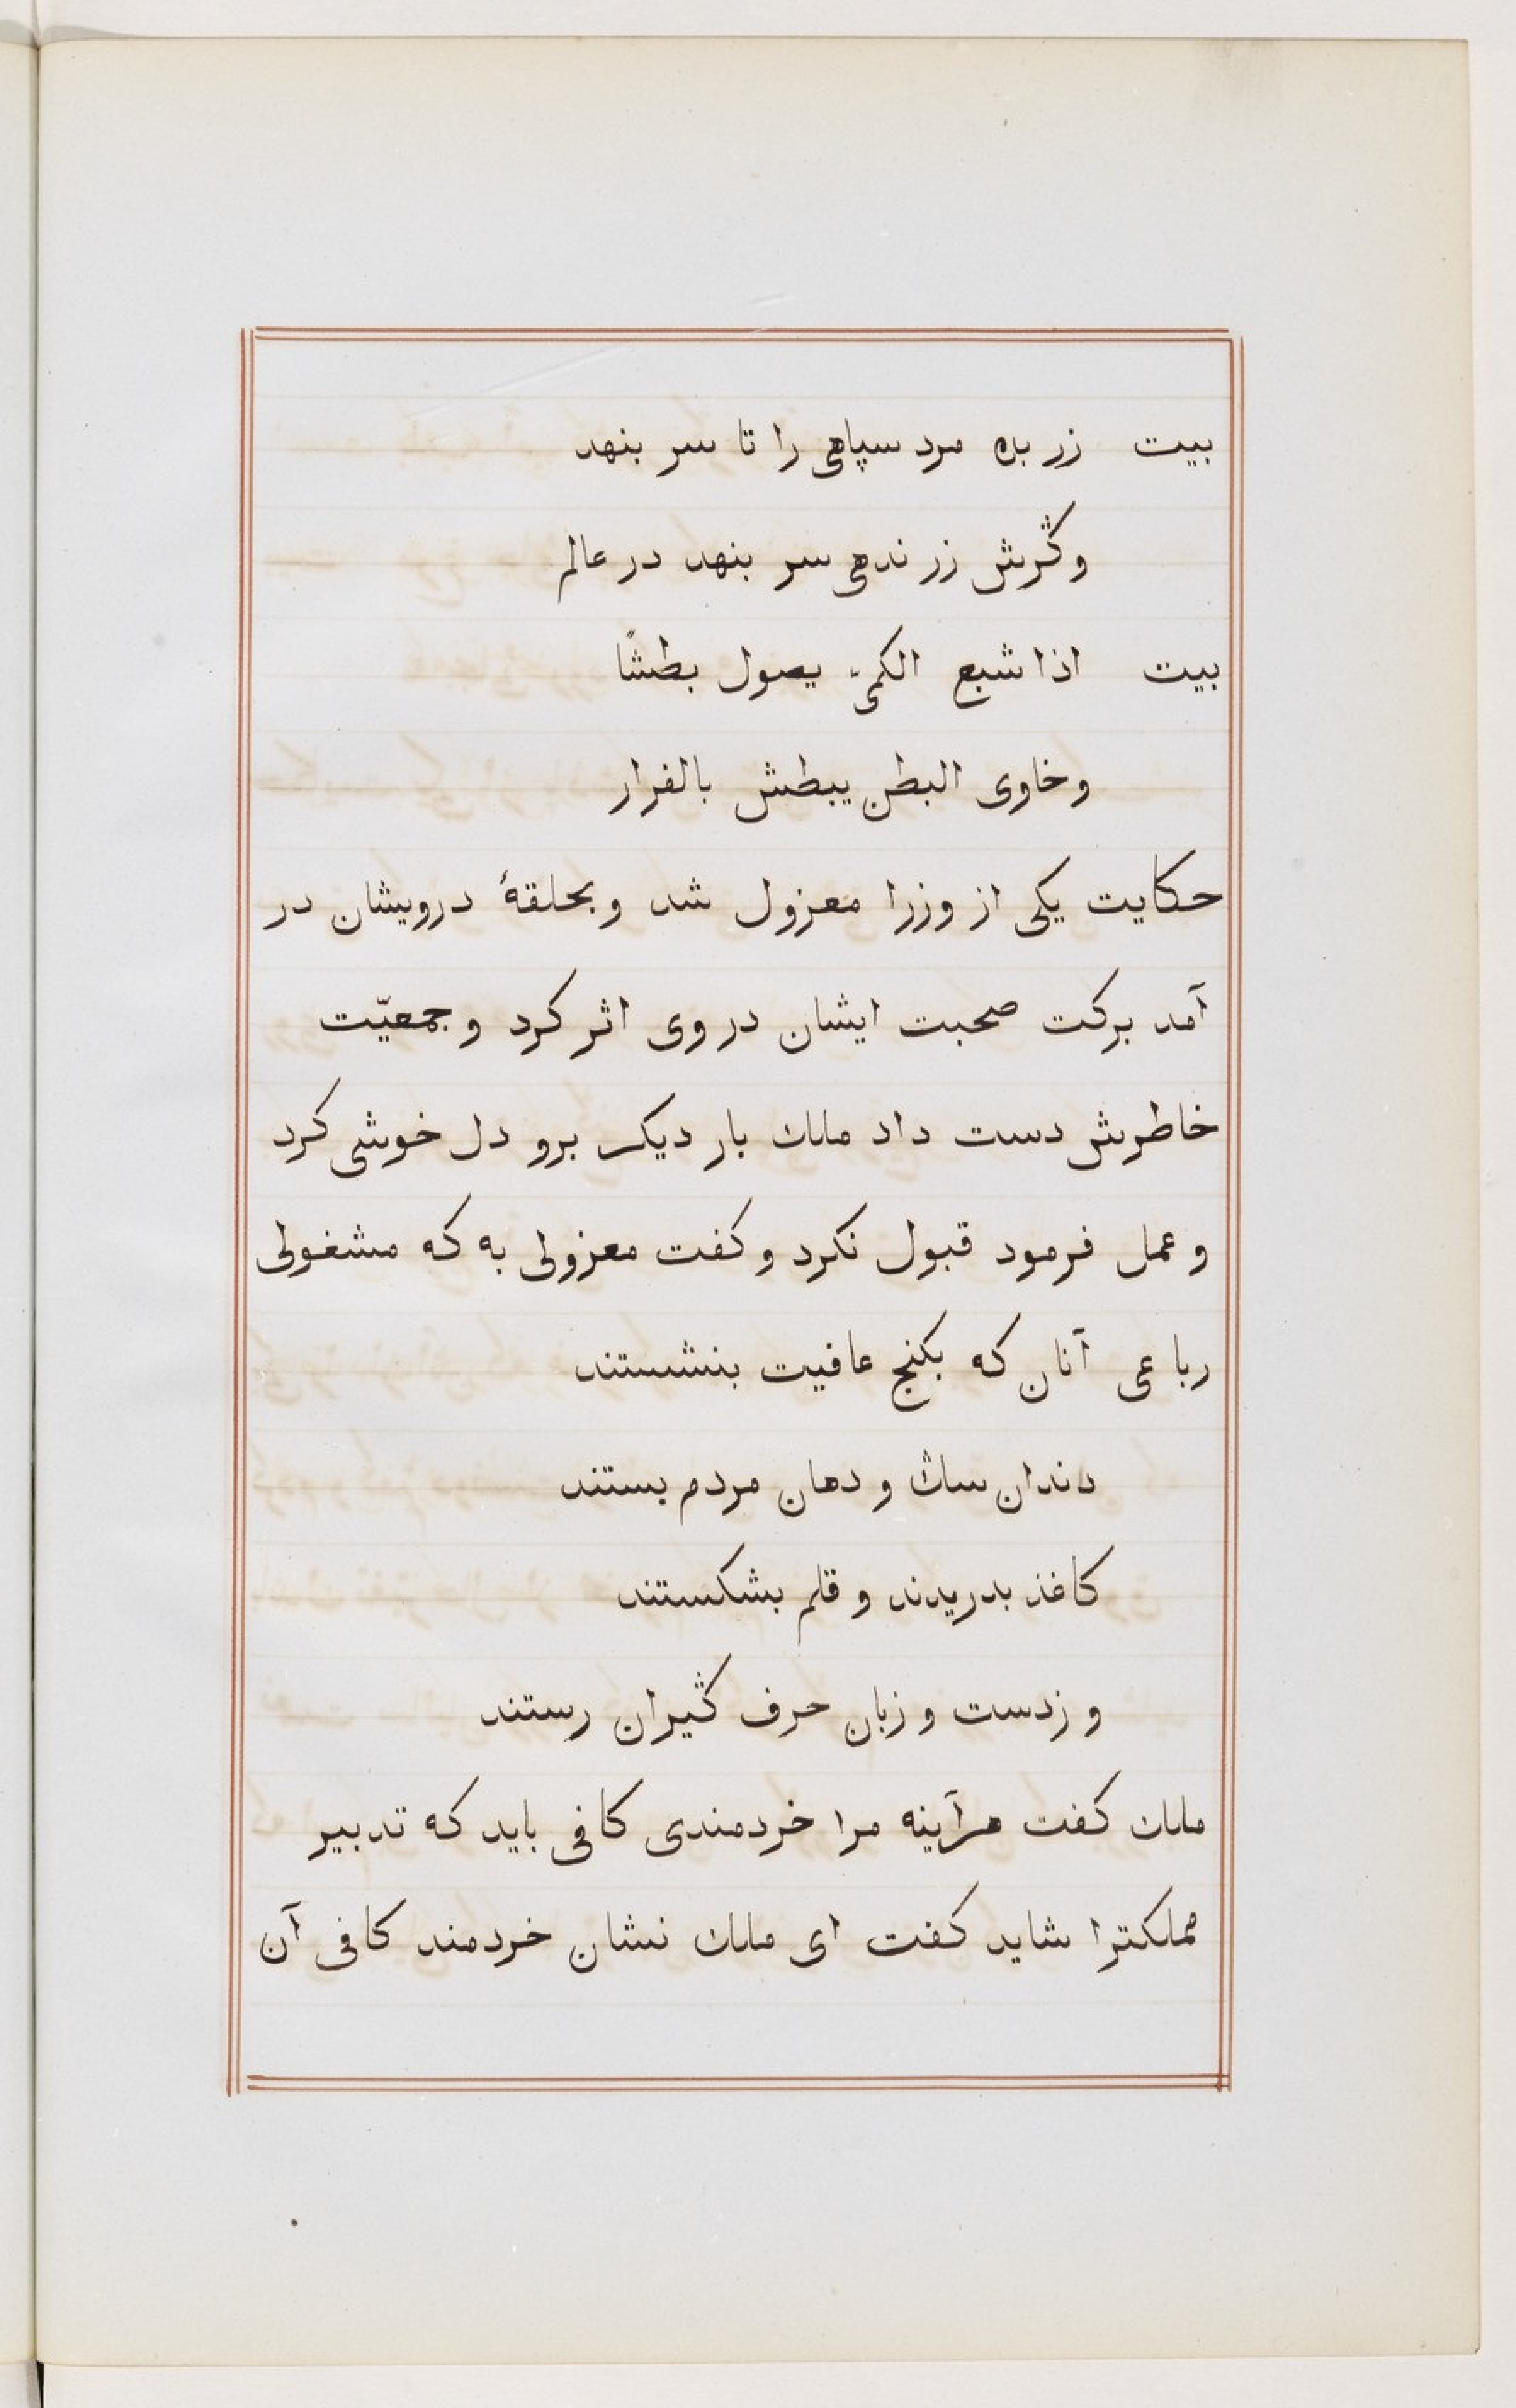 بیت زر بده مرد سپاهی را تا سر بنهد
وڭرش زر ندهی سر بنهد در عالم
بیت اذا شبع الکمیّ یصول بطشًا
وخاوی البطن یبطش بالفرار
حکایت یکی از وزرا معزول شد و بحلقهٔ درویشان در
آمد برکت صحبت ایشان در وی اثر کرد و جمعیّت
خاطرش دست داد ملک بار دیکر برو دل خوشی کرد
و عمل فرمود قبول نکرد و کفت معزولی به که مشغولی
رباعی آنان که بکنج عافیت بنشستند
دندان سڭ و دهان مردم بستند
کاغذ بدریدند و قلم بشکستند
و زدست و زبان حرف ڭیران رستند
ملک کفت هرآینه مرا خردمندی کافی باید که تدبیر
مملکترا شاید کفت ای ملک نشان خردمند کافی آن